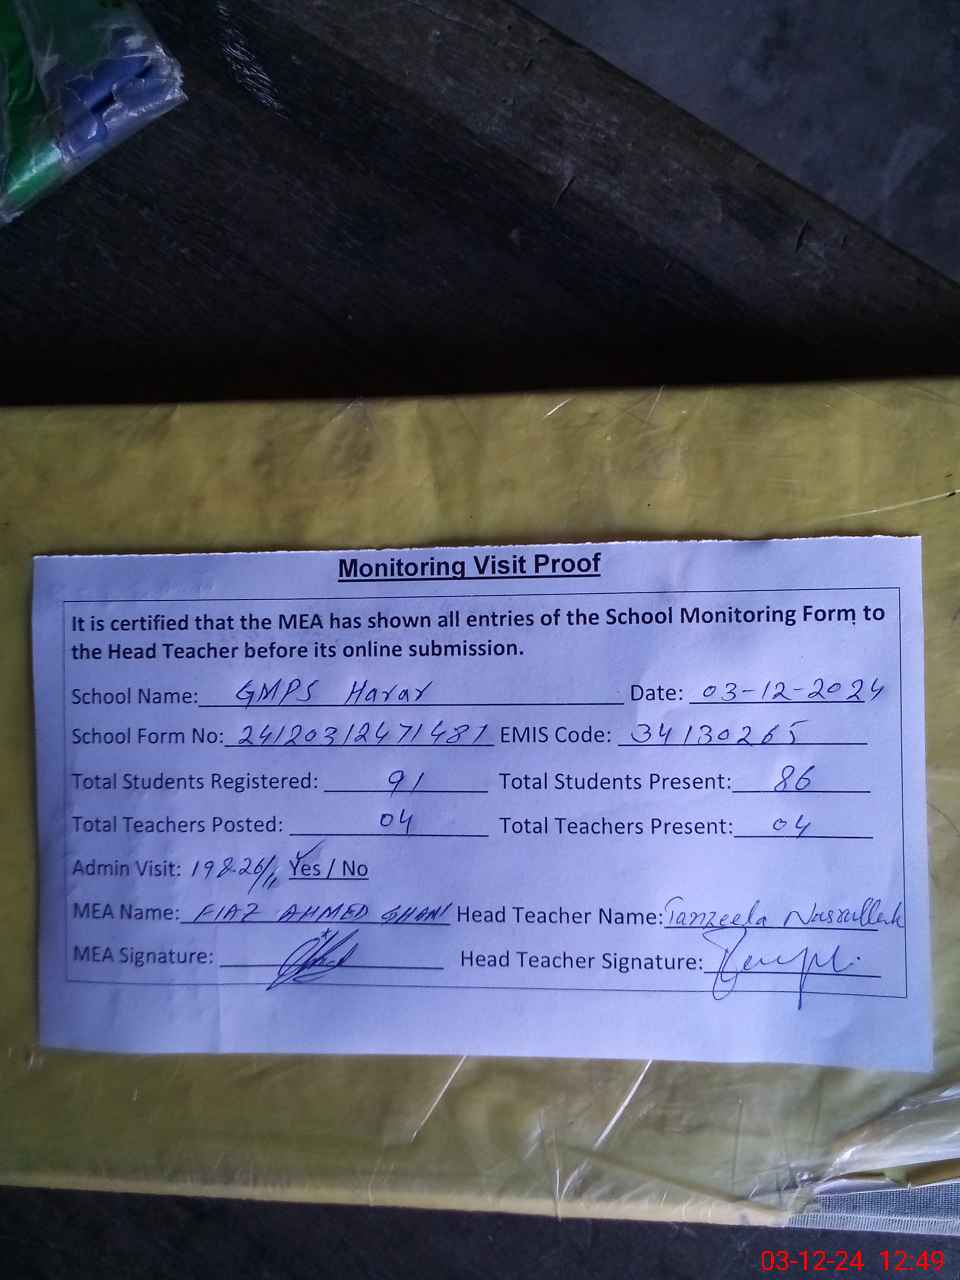 Monitoring Visit Proof
It is certified that the MEA has shown all entries of the School Monitoring Form to
the Head Teacher before its online submission.
School Name: GMPS Harar Date: 03-12-2024
School Form No: 24120312471487 EMIS Code: 34130265
Total Students Registered: 91 Total Students Present: 86
Total Teachers Posted: 04 Total Teachers Present: 04
Admin Visit: Yes / No
MEA Name: FIAZ AHMED GHANI Head Teacher Name: Tanzeela Nasrullah
MEA Signature: Head Teacher Signature:
03-12-24 12:49